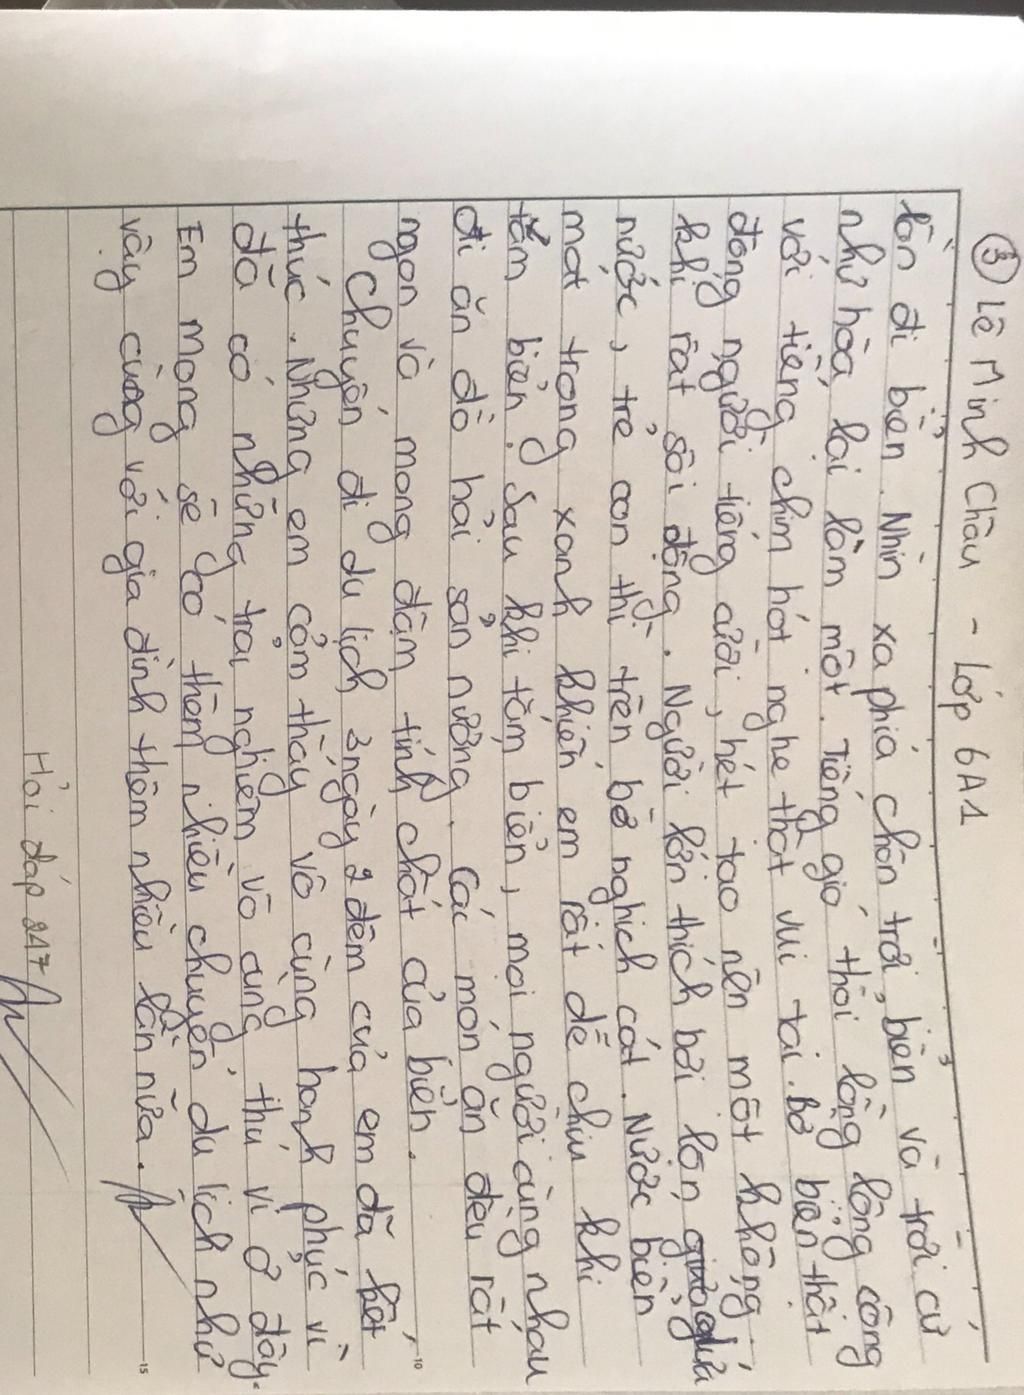 ③ Lê Minh Châu - Lớp 6A1
lần đi biển. Nhìn xa phía chân trời, biển và trời cứ
như hòa lại làm một. Tiếng gió thổi lồng lộng cộng
với tiếng chim hót nghe thật vui tai. Bờ biển thật
đông người, tiếng cười, hét tạo nên một không
khí rất sôi động. Người lớn thích bơi lặn giữa
nước, trẻ con thì trên bờ nghịch cát. Nước biển
mát trong xanh khiến em rất dễ chịu khi
tắm biển. Sau khi tắm biển, mọi người cùng nhau
đi ăn đồ hải sản nướng. Các món ăn đều rất
ngon và mang đậm tính chất của biển.
Chuyến đi du lịch 3 ngày 2 đêm của em đã kết
thúc. Nhưng em cảm thấy vô cùng hạnh phúc vì
đã có những trải nghiệm vô cùng thú vị ở đây.
Em mong sẽ có thêm nhiều chuyến du lịch như
vậy cùng với gia đình thêm nhiều lần nữa.
Hỏi đáp 247
10
15